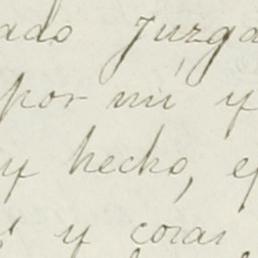 ado Juzga
por mí y
y hecho, e
y cosas